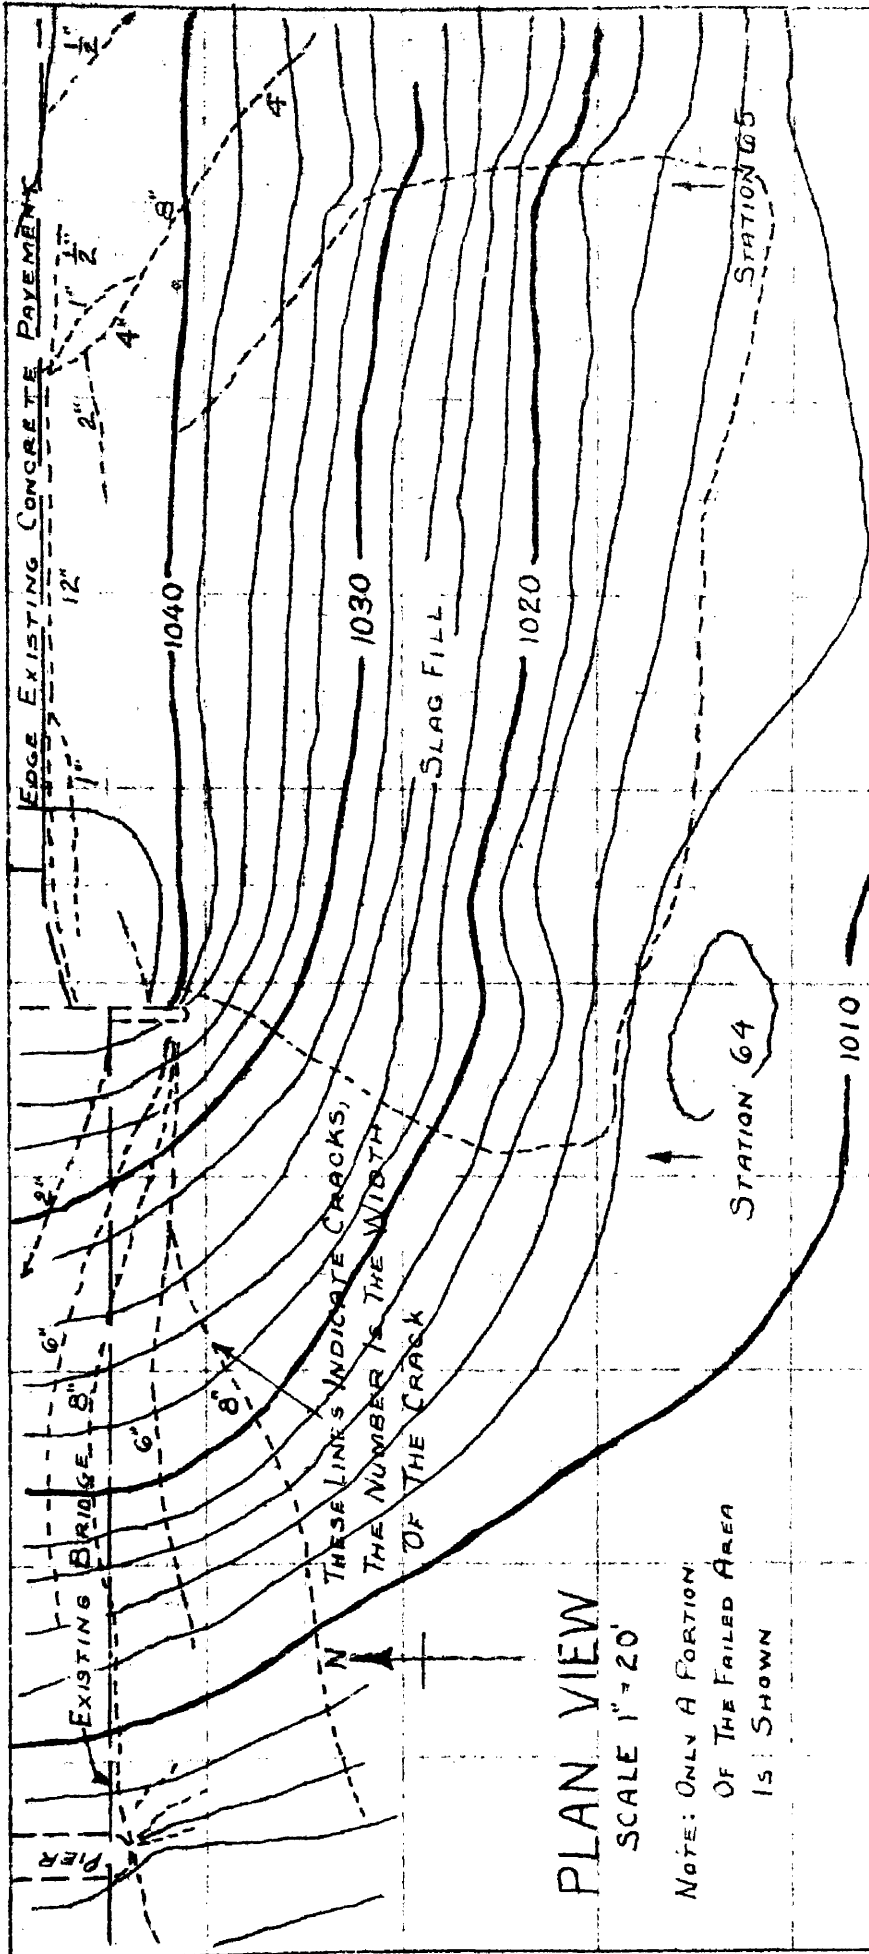 EDGE EXISTING CONCRETE PAVEMENT
1/2"
4"
8"
1"
1/2"
4"
2"
12"
1"
1040
1030
1020
SLAG FILL
STATION 65
STATION 64
1010
2"
6"
8"
6"
8"
EXISTING BRIDGE
PIER
THESE LINES INDICATE CRACKS,
THE NUMBER IS THE WIDTH
OF THE CRACK
N
PLAN VIEW
SCALE 1"=20'
NOTE: ONLY A PORTION
OF THE FAILED AREA
IS SHOWN